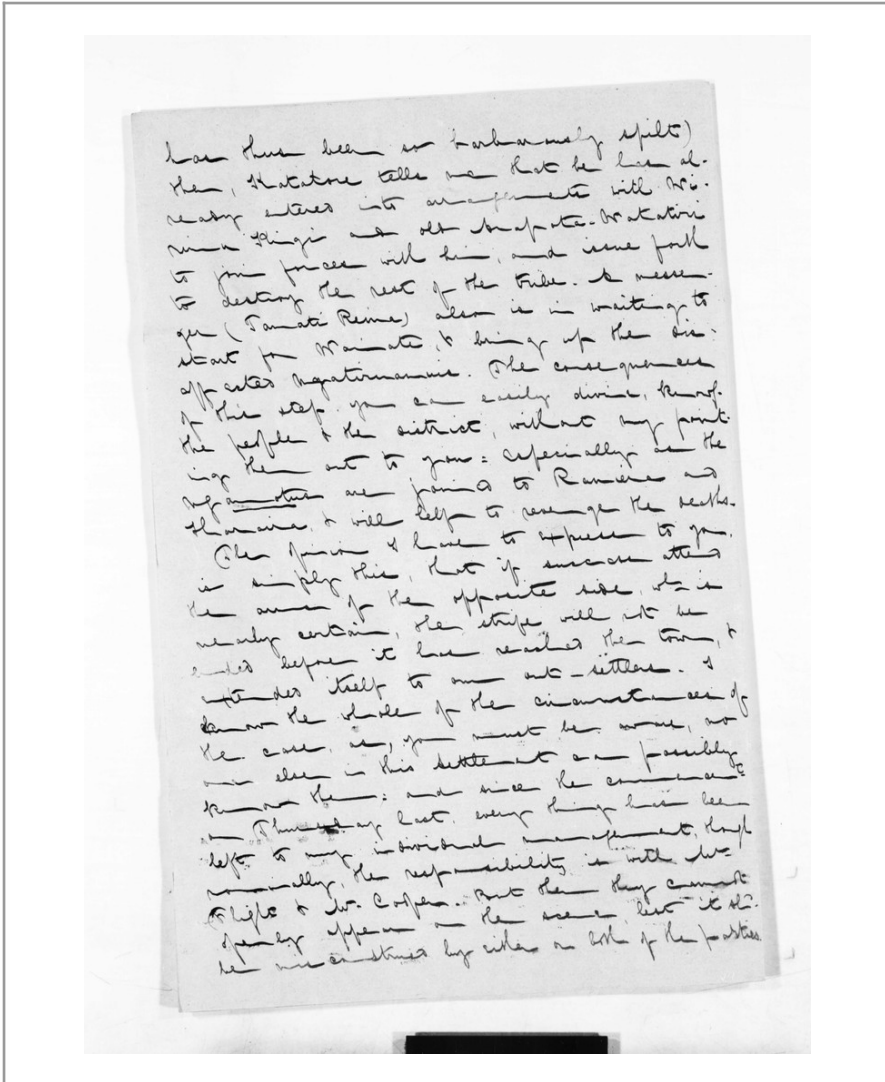 has thus been so barbarously spilt)
then, Katatore tells me that he has al-
ready entered into arrangements with Wi-
rimu Kingi and old Watatori
to join forces with him, and issue forth
to destroy the rest of the tribe. A messen-
ger (Tamati Reina) also is in waiting to
start for Waimate, & bring up the dis-
affected Ngatiruanuis. The consequences
of this step you can easily divine, knowg.
the people & the district, without my point-
ing them out to you: especially as the
are joined to Rawiri and
& will help to revenge the deaths.
The opinion I have to express to you,
is simply this, that if success attend
the arms of the opposite side, wh= is
nearly certain, the strife will not be
ended before it has reached the town, &
extended itself to our out-settlers. I
know the whole of the circumstances of
the case, as, you must be aware, no
one else in this settlement can possibly
know them: and since the commencet.
on Thursday last, every thing has been
left to my individual management, though
nominally, the responsibility is with Mr=
Flight & Mr. Cooper. But then they cannot
openly appear on the scene, lest it shd.
be misconstrued by either or both of the parties.